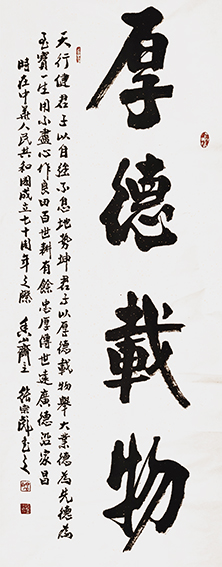 厚德載物
天行健君子以自强不息地勢坤君子以厚德載物舉大業德為先德為
至寶一生用心盡心作良田百世耕有餘忠厚傳世遠廣德澤家昌
時在中華人民共和國成立七十周年之際 香山齋主